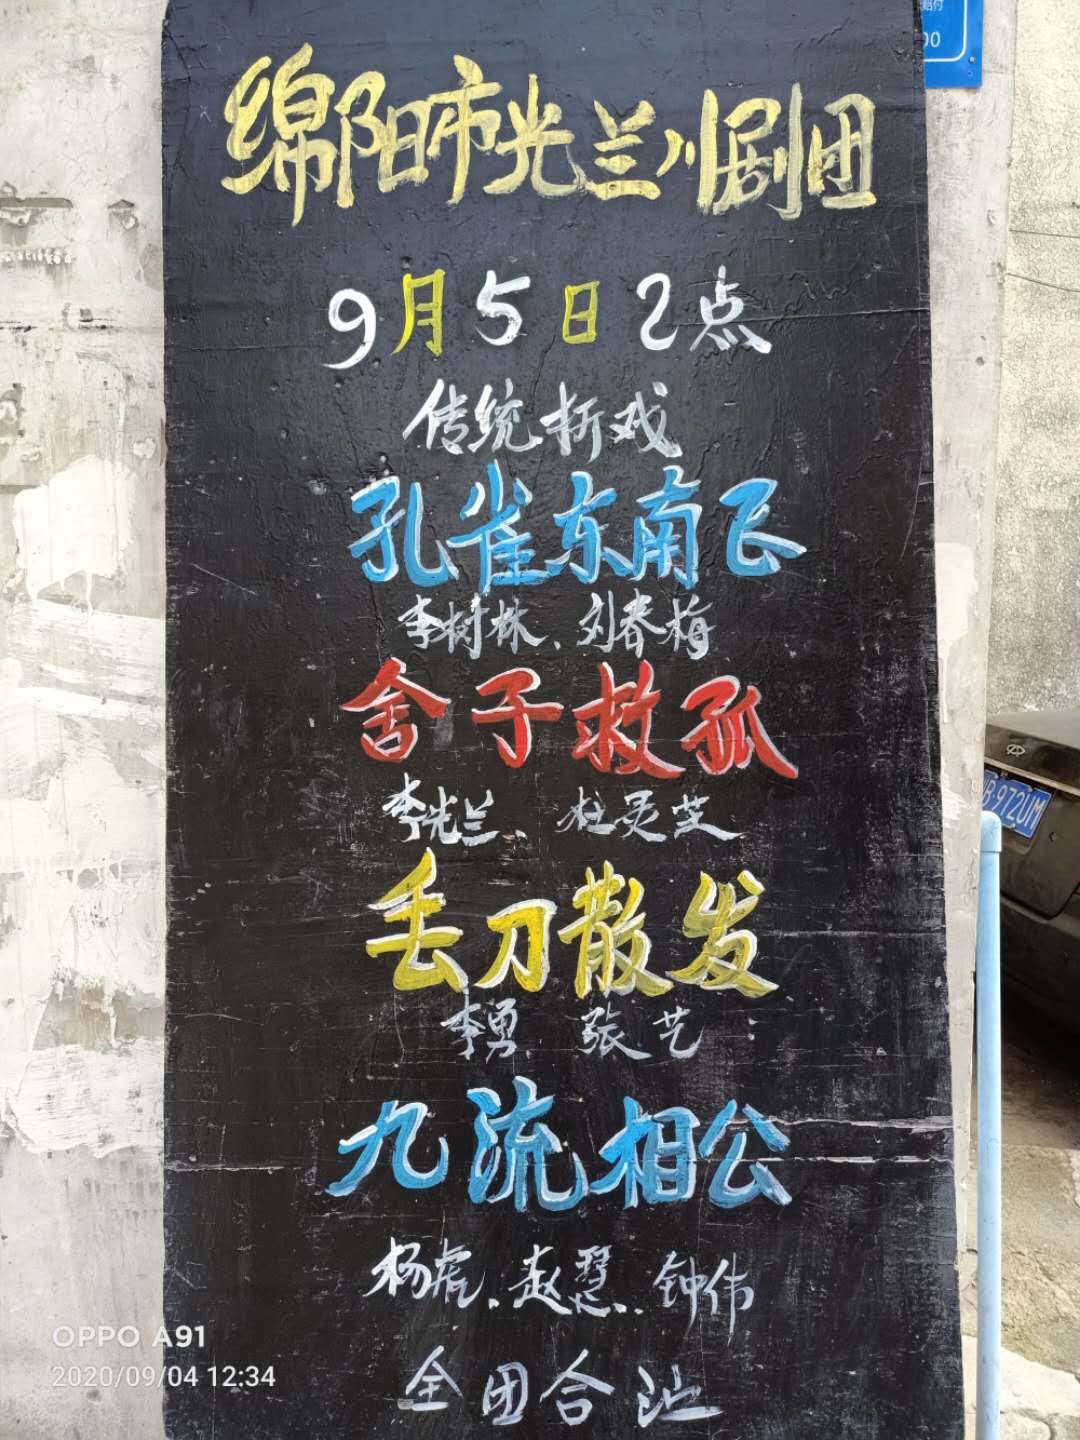 赔付
00
绵阳市光兰川剧团
9月5日2点
传统折戏
孔雀东南飞
李树林、刘春梅
舍子救孤
李光兰、杜灵芝
丢刀散发
李勇 张艺
B972UM
九流相公
杨虎、赵慧、钟伟
全团合演
OPPO A91
2020/09/04 12:34